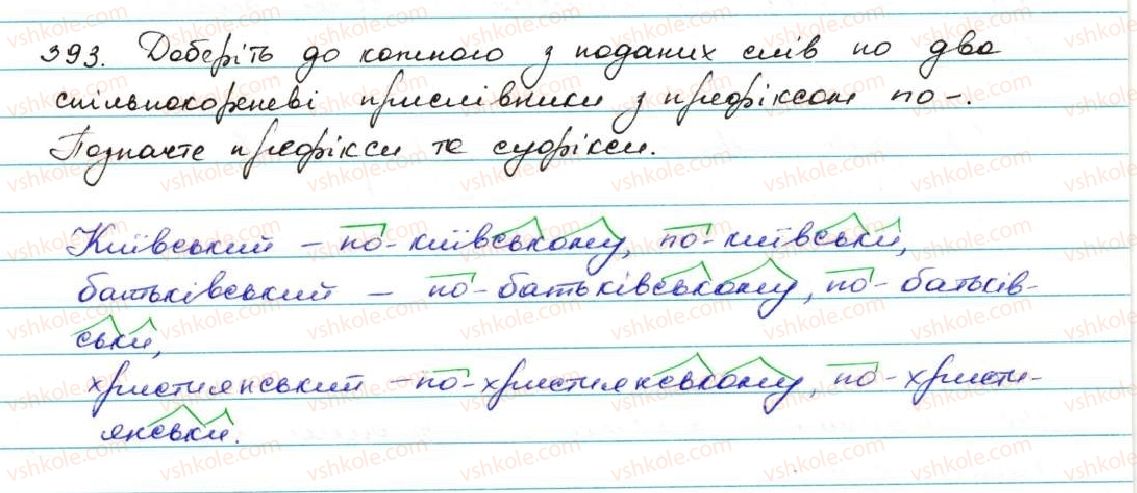 393. Доберіть до кожного з поданих слів по два
спільнокореневі прислівники з префіксом по-.
Позначте префікси та суфікси.
Київський - по-київському, по-київськи,
батьківський - по-батьківському, по-батьків-
ськи,
християнський - по-християнському, по-христи-
янськи.